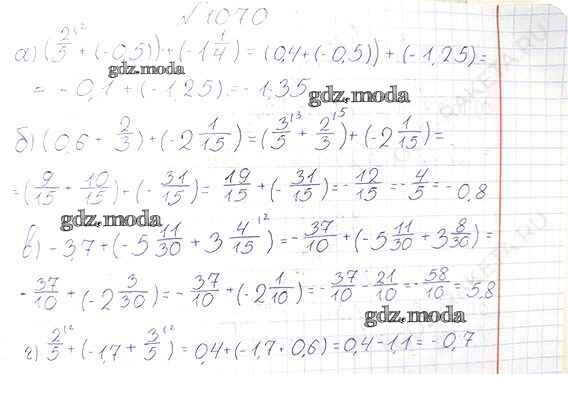 №1070
а) (2/5 + (-0,5)) + (-1 1/4) = (0,4 + (-0,5)) + (-1,25) =
gdz.moda
= -0,1 + (-1,25) = -1,35
gdz.moda
б) (0,6 + 2/3) + (-2 1/15) = (3/5 + 2/3) + (-2 1/15) =
= (9/15 + 10/15) + (- 31/15) = 19/15 + (- 31/15) = - 12/15 = - 4/5 = -0,8
gdz.moda
в) -3,7 + (-5 11/30 + 3 4/15) = - 37/10 + (-5 11/30 + 3 8/30) =
- 37/10 + (-2 3/30) = - 37/10 + (-2 1/10) = - 37/10 - 21/10 = - 58/10 = 5,8
gdz.moda
г) 2/5 + (-1,7 + 3/5) = 0,4 + (-1,7 + 0,6) = 0,4 - 1,1 = -0,7